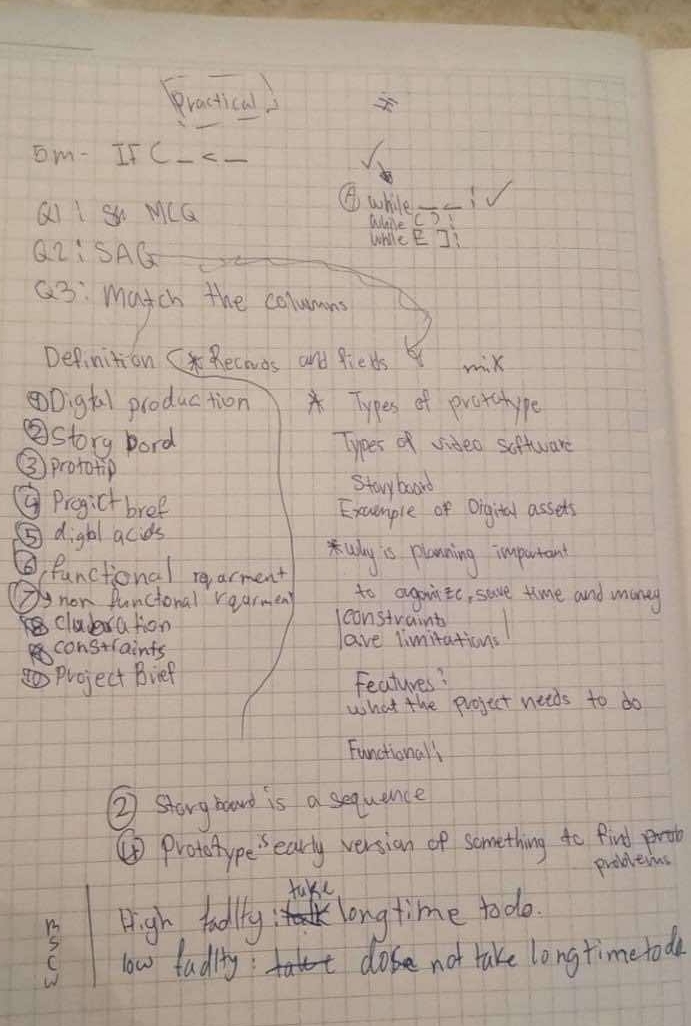 Practical
5m- IF ( _ < _
Q1: MCQ
Q2: SAQ
Q3: Match the columns
(A) while _ _ : ✓
while ( ) :
while [ ] :
Definition (* Records and fields
① Digtal production
② Story bord
③ prototip
④ Progict bref
⑤ digtal acids
⑥ functional rqarment
⑦ non functonal rquarment
⑧ claboration
⑨ constraints
⑩ Project Brief
mix
* Types of prototype
Types of video software
Storyboard
Example of Digital assets
* why is planning important
to oganize, save time and money
constraints
are limitations
Features:
what the project needs to do
Functional:
② Story board is a sequence
④ Prototype is early version of something to find prob
problems
High fadlty: take long time todo.
low fadlty: dose not take long time todo
B
S
C
W